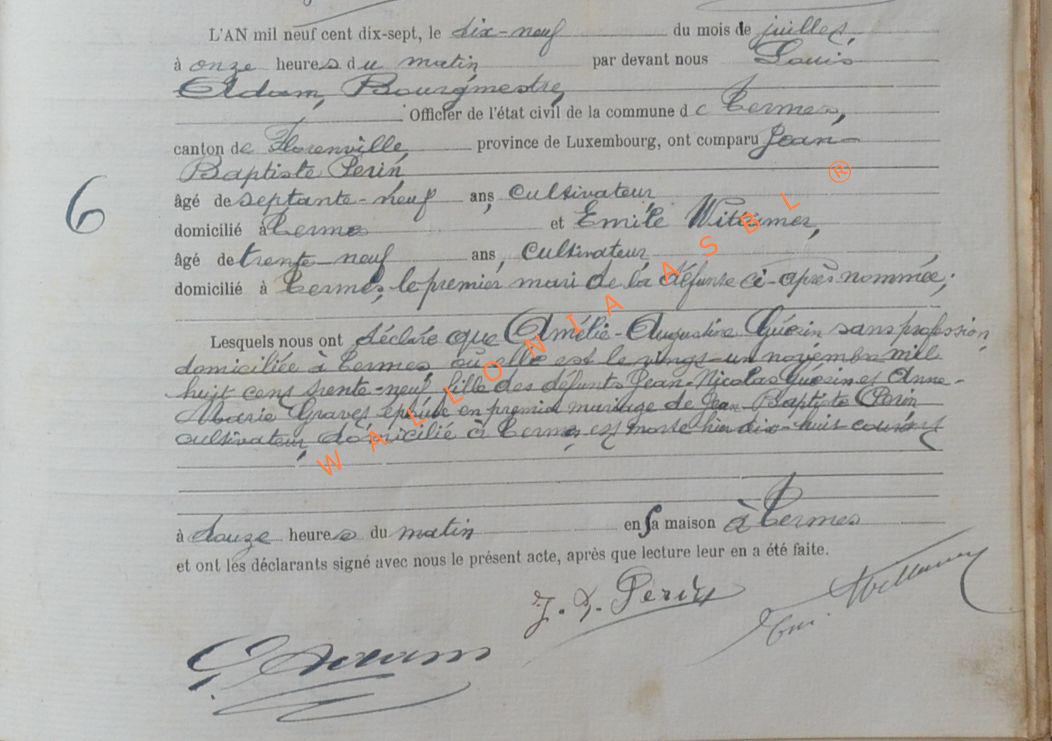 L'AN mil neuf cent dix-sept, le dix-neuf du mois de juillet,
à onze heures du matin par devant nous Louis
Adam, Bourgmestre,
Officier de l'état civil de la commune de Termes,
canton de Florenville, province de Luxembourg, ont comparu Jean-
Baptiste Perin
âgé de septante-neuf ans, cultivateur
domicilié à Termes et Emile
âgé de trente-neuf ans, cultivateur,
domicilié à Termes, le premier mari de la défunte ci-après nommée;
6
Lesquels nous ont déclaré que Amélie-Augustine Guérin sans profession,
domiciliée à Termes où elle est le vingt-un novembre mil
huit cent trente-neuf, fille des défunts Jean-Nicolas Guérin et Anne-
Marie Graves épouse en premier mariage de Jean-Baptiste Perin
cultivateur, domicilié à Termes, est morte hier dix-huit courant
à douze heures du matin en sa maison à Termes
et ont les déclarants signé avec nous le présent acte, après que lecture leur en a été faite.
J. B. Perin
Adam
WALLONIA ASBL ®